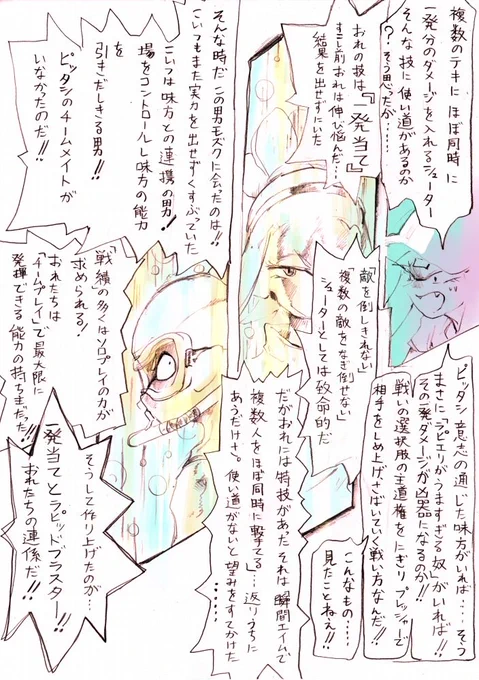 複数のテキに ほぼ同時に
一発分のダメージを入れるシューター
そんな技に使い道があるのか
？そう思ったが……
おれの技は『一発当て』
すこし前おれは伸び悩んだ…
結果を出せずにいた
そんな時だ この男モズクに会ったのは!!
こいつもまた実力を出せずくすぶっていた
こいつは味方との連携の男!
場をコントロールし味方の能力
を
引きだしきる男!!
ピッタシのチームメイトが
いなかったのだ!!
「敵を倒しきれない」
複数の敵をなぎ倒せない」
シューターとしては致命的だ
だがおれには特技があった それは瞬間エイムで
複数人をほぼ同時に撃てる」…返りうちに
あうだけさ。使い道がないと望みをすてかけた
……
「戦績の多くはソロプレイの力が
求められる!
おれたちは
「チームプレイ」で最大限に
発揮できる能力の持ち主だった!!
そうして作り上げたのが…
一発当てとラピッドブラスター!!
おれたちの連係だ!!
ピッタシ意志の通じた味方がいれば……そう
まさに「アピエリがうますぎる奴」がいれば!!
その一発ダメージが凶器になるのか!!
戦いの選択肢の主導権をにぎりプレッシャーで
相手をしめ上げさばいていく戦い方なんだ!!
こんなもの……
見たことねェ!!